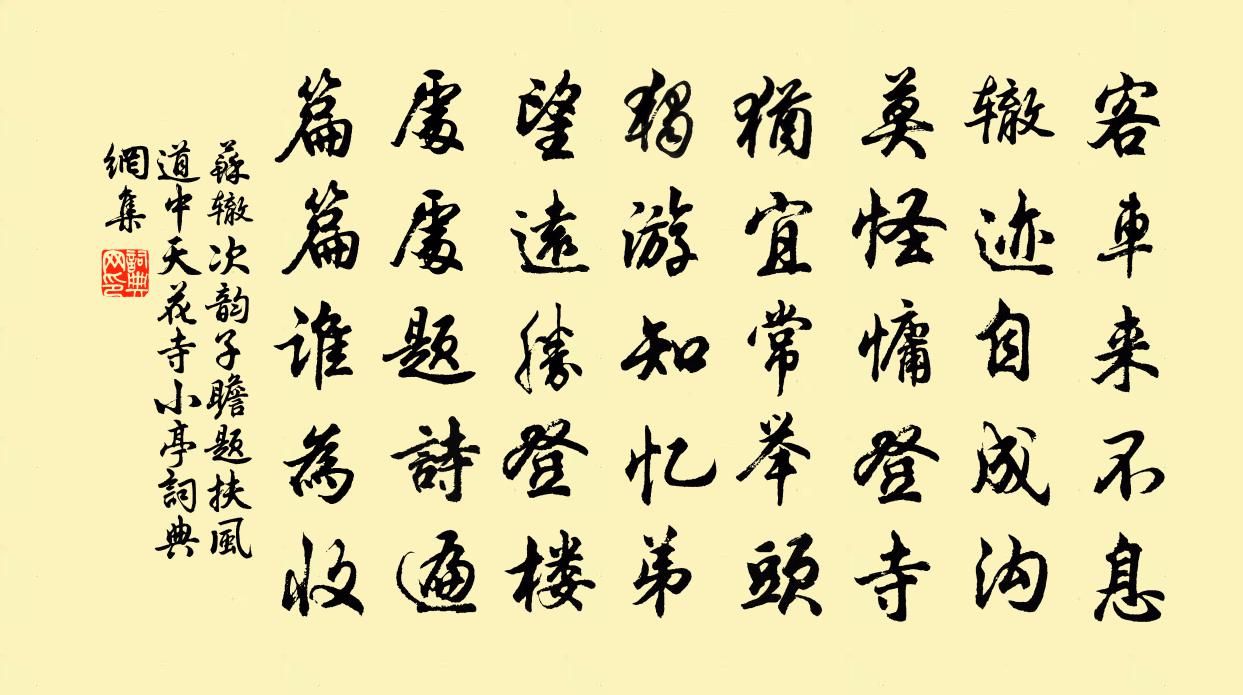 客車来不息
辙迹自成沟
莫怪慵登寺
猶宜常举頭
獨游知忆弟
望遠勝登楼
處處题詩遍
篇篇誰為收
蘇辙次韵子瞻题扶風
道中天花寺小亭詞典
網集
詞典
网印